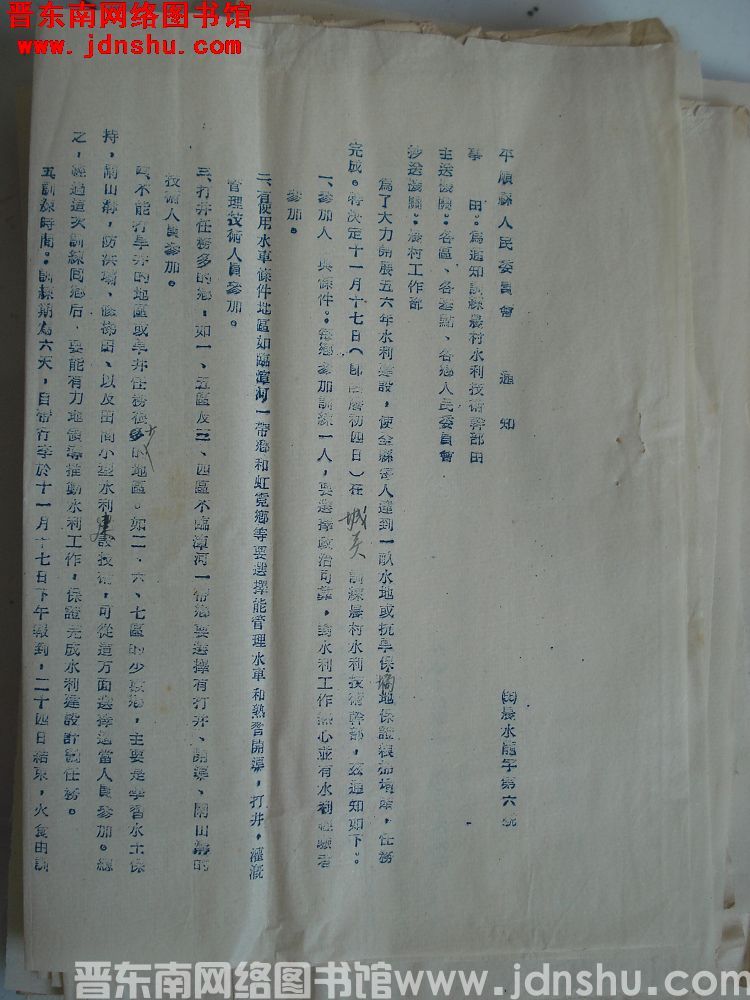 晋东南网络图书馆
www.jdnshu.com
(55)農水龍字第六號
平順縣人民委員會 通知
事由:為通知訓練農村水利技術幹部由
主送機關:各區、各基點、各鄉人民委員會
抄送機關:農村工作部
為了大力開展五六年水利建設,使全縣每人達到一畝水地或抗旱保墒地保證糧棉增產,任務
完成。特決定十一月十七日(即舊曆初四日)在城关訓練農村水利技術幹部,茲通知如下:
一、參加人 與條件:每鄉參加訓練一人,要選擇政治可靠,對水利工作熱心並有水利經驗者
參加。
二、有使用水車條件地區如臨漳河一帶鄉和虹霓鄉等要選擇能管理水車和熟習開渠,打井,灌溉
管理技術人員參加。
三、打井任務多的鄉,如一、五區及三、四區不臨漳河一帶鄉要選擇有打井、開渠、閘山溝的
技術人員參加。
四、不能打旱井的地區或旱井任務很少的地區。如二、六、七區的少數鄉,主要是學習水土保
持,閘山溝,防洪壩、修梯田、以及田間小型水利建設技術,可從這方面選擇適當人員參加。總
之,經過這次訓練回鄉后,要能有力地領導推動水利工作,保證完成水利建設計劃任務。
五、訓練時間:訓練期為六天,自帶行李於十一月十七日下午報到,二十四日結束,火食由訓
晋东南网络图书馆www.jdnshu.com